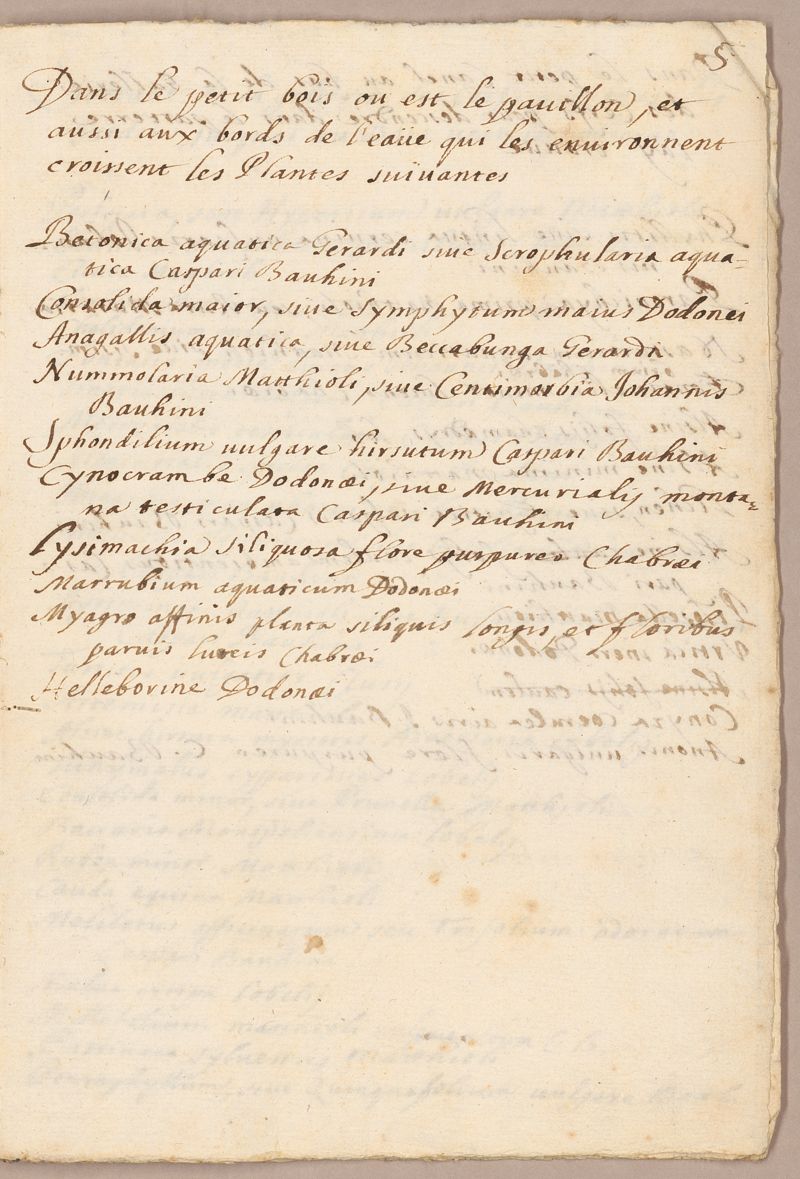 5
Dans le petit bois ou est le pauillon, et
aussi aux bords de l'eaüe qui les enuironnent
croissent les Plantes suiuantes
Betonica aquatica Gerardi siue Scrophularia aqua-
tica Caspari Bauhini
Consolida maior, siue Symphytum maius Dodonei
Anagallis aquatica, siue Beccabunga Gerardi
Nummolaria Matthioli, siue Centimorbia Johannis
Bauhini
Sphondilium uulgare hirsutum Caspari Bauhini
Cynocrambe Dodonæi, siue Mercurialis monta-
na testiculata Caspari Bauhini
Lysimachia siliquosa flore purpureo Chabræi
Marrubium aquaticum Dodonæi
Myagro affinis planta siliquis longis, et floribus
paruis luteis Chabræi
Helleborine Dodonæi